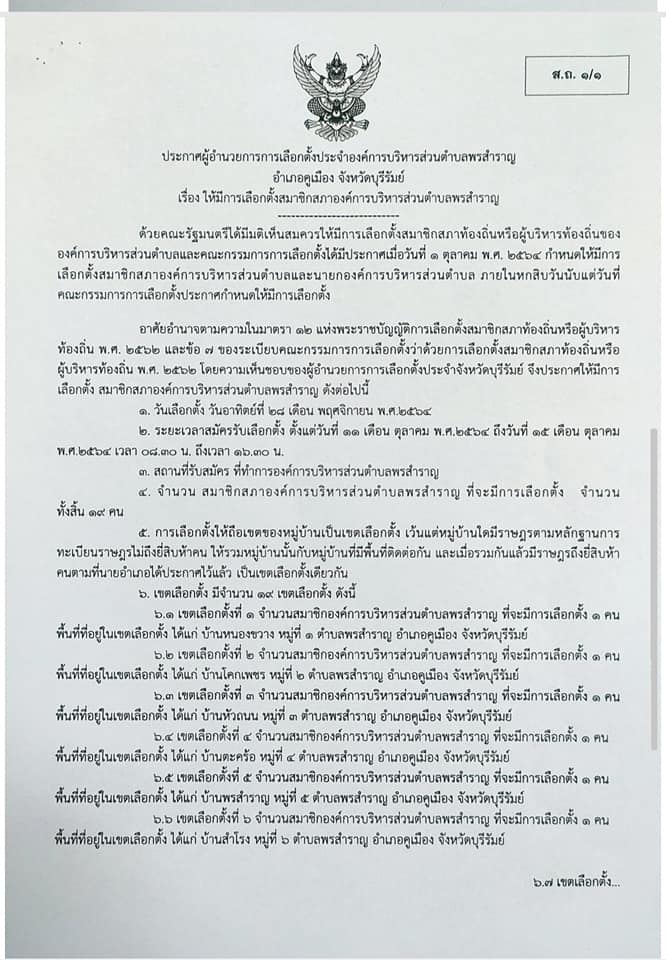 ส.ถ. ๑/๑
ประกาศผู้อำนวยการการเลือกตั้งประจำองค์การบริหารส่วนตำบลพรสำราญ
อำเภอคูเมือง จังหวัดบุรีรัมย์
เรื่อง ให้มีการเลือกตั้งสมาชิกสภาองค์การบริหารส่วนตำบลพรสำราญ
---------------------------
ด้วยคณะรัฐมนตรีได้มีมติเห็นสมควรให้มีการเลือกตั้งสมาชิกสภาท้องถิ่นหรือผู้บริหารท้องถิ่นของ
องค์การบริหารส่วนตำบลและคณะกรรมการการเลือกตั้งได้มีประกาศเมื่อวันที่ ๑ ตุลาคม พ.ศ. ๒๕๖๔ กำหนดให้มีการ
เลือกตั้งสมาชิกสภาองค์การบริหารส่วนตำบลและนายกองค์การบริหารส่วนตำบล ภายในหกสิบวันนับแต่วันที่
คณะกรรมการการเลือกตั้งประกาศกำหนดให้มีการเลือกตั้ง
อาศัยอำนาจตามความในมาตรา ๑๒ แห่งพระราชบัญญัติการเลือกตั้งสมาชิกสภาท้องถิ่นหรือผู้บริหาร
ท้องถิ่น พ.ศ. ๒๕๖๒ และข้อ ๗ ของระเบียบคณะกรรมการการเลือกตั้งว่าด้วยการเลือกตั้งสมาชิกสภาท้องถิ่นหรือ
ผู้บริหารท้องถิ่น พ.ศ. ๒๕๖๒ โดยความเห็นชอบของผู้อำนวยการการเลือกตั้งประจำจังหวัดบุรีรัมย์ จึงประกาศให้มีการ
เลือกตั้ง สมาชิกสภาองค์การบริหารส่วนตำบลพรสำราญ ดังต่อไปนี้
๑. วันเลือกตั้ง วันอาทิตย์ที่ ๒๘ เดือน พฤศจิกายน พ.ศ.๒๕๖๔
๒. ระยะเวลาสมัครรับเลือกตั้ง ตั้งแต่วันที่ ๑๑ เดือน ตุลาคม พ.ศ.๒๕๖๔ ถึงวันที่ ๑๕ เดือน ตุลาคม
พ.ศ.๒๕๖๔ เวลา ๐๘.๓๐ น. ถึงเวลา ๑๖.๓๐ น.
๓. สถานที่รับสมัคร ที่ทำการองค์การบริหารส่วนตำบลพรสำราญ
๔. จำนวน สมาชิกสภาองค์การบริหารส่วนตำบลพรสำราญ ที่จะมีการเลือกตั้ง จำนวน
ทั้งสิ้น ๑๙ คน
๕. การเลือกตั้งให้ถือเขตของหมู่บ้านเป็นเขตเลือกตั้ง เว้นแต่หมู่บ้านใดมีราษฎรตามหลักฐานการ
ทะเบียนราษฎรไม่ถึงยี่สิบห้าคน ให้รวมหมู่บ้านนั้นกับหมู่บ้านที่มีพื้นที่ติดต่อกัน และเมื่อรวมกันแล้วมีราษฎรถึงยี่สิบห้า
คนตามที่นายอำเภอได้ประกาศไว้แล้ว เป็นเขตเลือกตั้งเดียวกัน
๖. เขตเลือกตั้ง มีจำนวน ๑๙ เขตเลือกตั้ง ดังนี้
๖.๑ เขตเลือกตั้งที่ ๑ จำนวนสมาชิกองค์การบริหารส่วนตำบลพรสำราญ ที่จะมีการเลือกตั้ง ๑ คน
พื้นที่ที่อยู่ในเขตเลือกตั้ง ได้แก่ บ้านหนองขวาง หมู่ที่ ๑ ตำบลพรสำราญ อำเภอคูเมือง จังหวัดบุรีรัมย์
๖.๒ เขตเลือกตั้งที่ ๒ จำนวนสมาชิกองค์การบริหารส่วนตำบลพรสำราญ ที่จะมีการเลือกตั้ง ๑ คน
พื้นที่ที่อยู่ในเขตเลือกตั้ง ได้แก่ บ้านโคกเพชร หมู่ที่ ๒ ตำบลพรสำราญ อำเภอคูเมือง จังหวัดบุรีรัมย์
๖.๓ เขตเลือกตั้งที่ ๓ จำนวนสมาชิกองค์การบริหารส่วนตำบลพรสำราญ ที่จะมีการเลือกตั้ง ๑ คน
พื้นที่ที่อยู่ในเขตเลือกตั้ง ได้แก่ บ้านหัวถนน หมู่ที่ ๓ ตำบลพรสำราญ อำเภอคูเมือง จังหวัดบุรีรัมย์
๖.๔ เขตเลือกตั้งที่ ๔ จำนวนสมาชิกองค์การบริหารส่วนตำบลพรสำราญ ที่จะมีการเลือกตั้ง ๑ คน
พื้นที่ที่อยู่ในเขตเลือกตั้ง ได้แก่ บ้านตะคร้อ หมู่ที่ ๔ ตำบลพรสำราญ อำเภอคูเมือง จังหวัดบุรีรัมย์
๖.๕ เขตเลือกตั้งที่ ๕ จำนวนสมาชิกองค์การบริหารส่วนตำบลพรสำราญ ที่จะมีการเลือกตั้ง ๑ คน
พื้นที่ที่อยู่ในเขตเลือกตั้ง ได้แก่ บ้านพรสำราญ หมู่ที่ ๕ ตำบลพรสำราญ อำเภอคูเมือง จังหวัดบุรีรัมย์
๖.๖ เขตเลือกตั้งที่ ๖ จำนวนสมาชิกองค์การบริหารส่วนตำบลพรสำราญ ที่จะมีการเลือกตั้ง ๑ คน
พื้นที่ที่อยู่ในเขตเลือกตั้ง ได้แก่ บ้านสำโรง หมู่ที่ ๖ ตำบลพรสำราญ อำเภอคูเมือง จังหวัดบุรีรัมย์
๖.๗ เขตเลือกตั้ง...